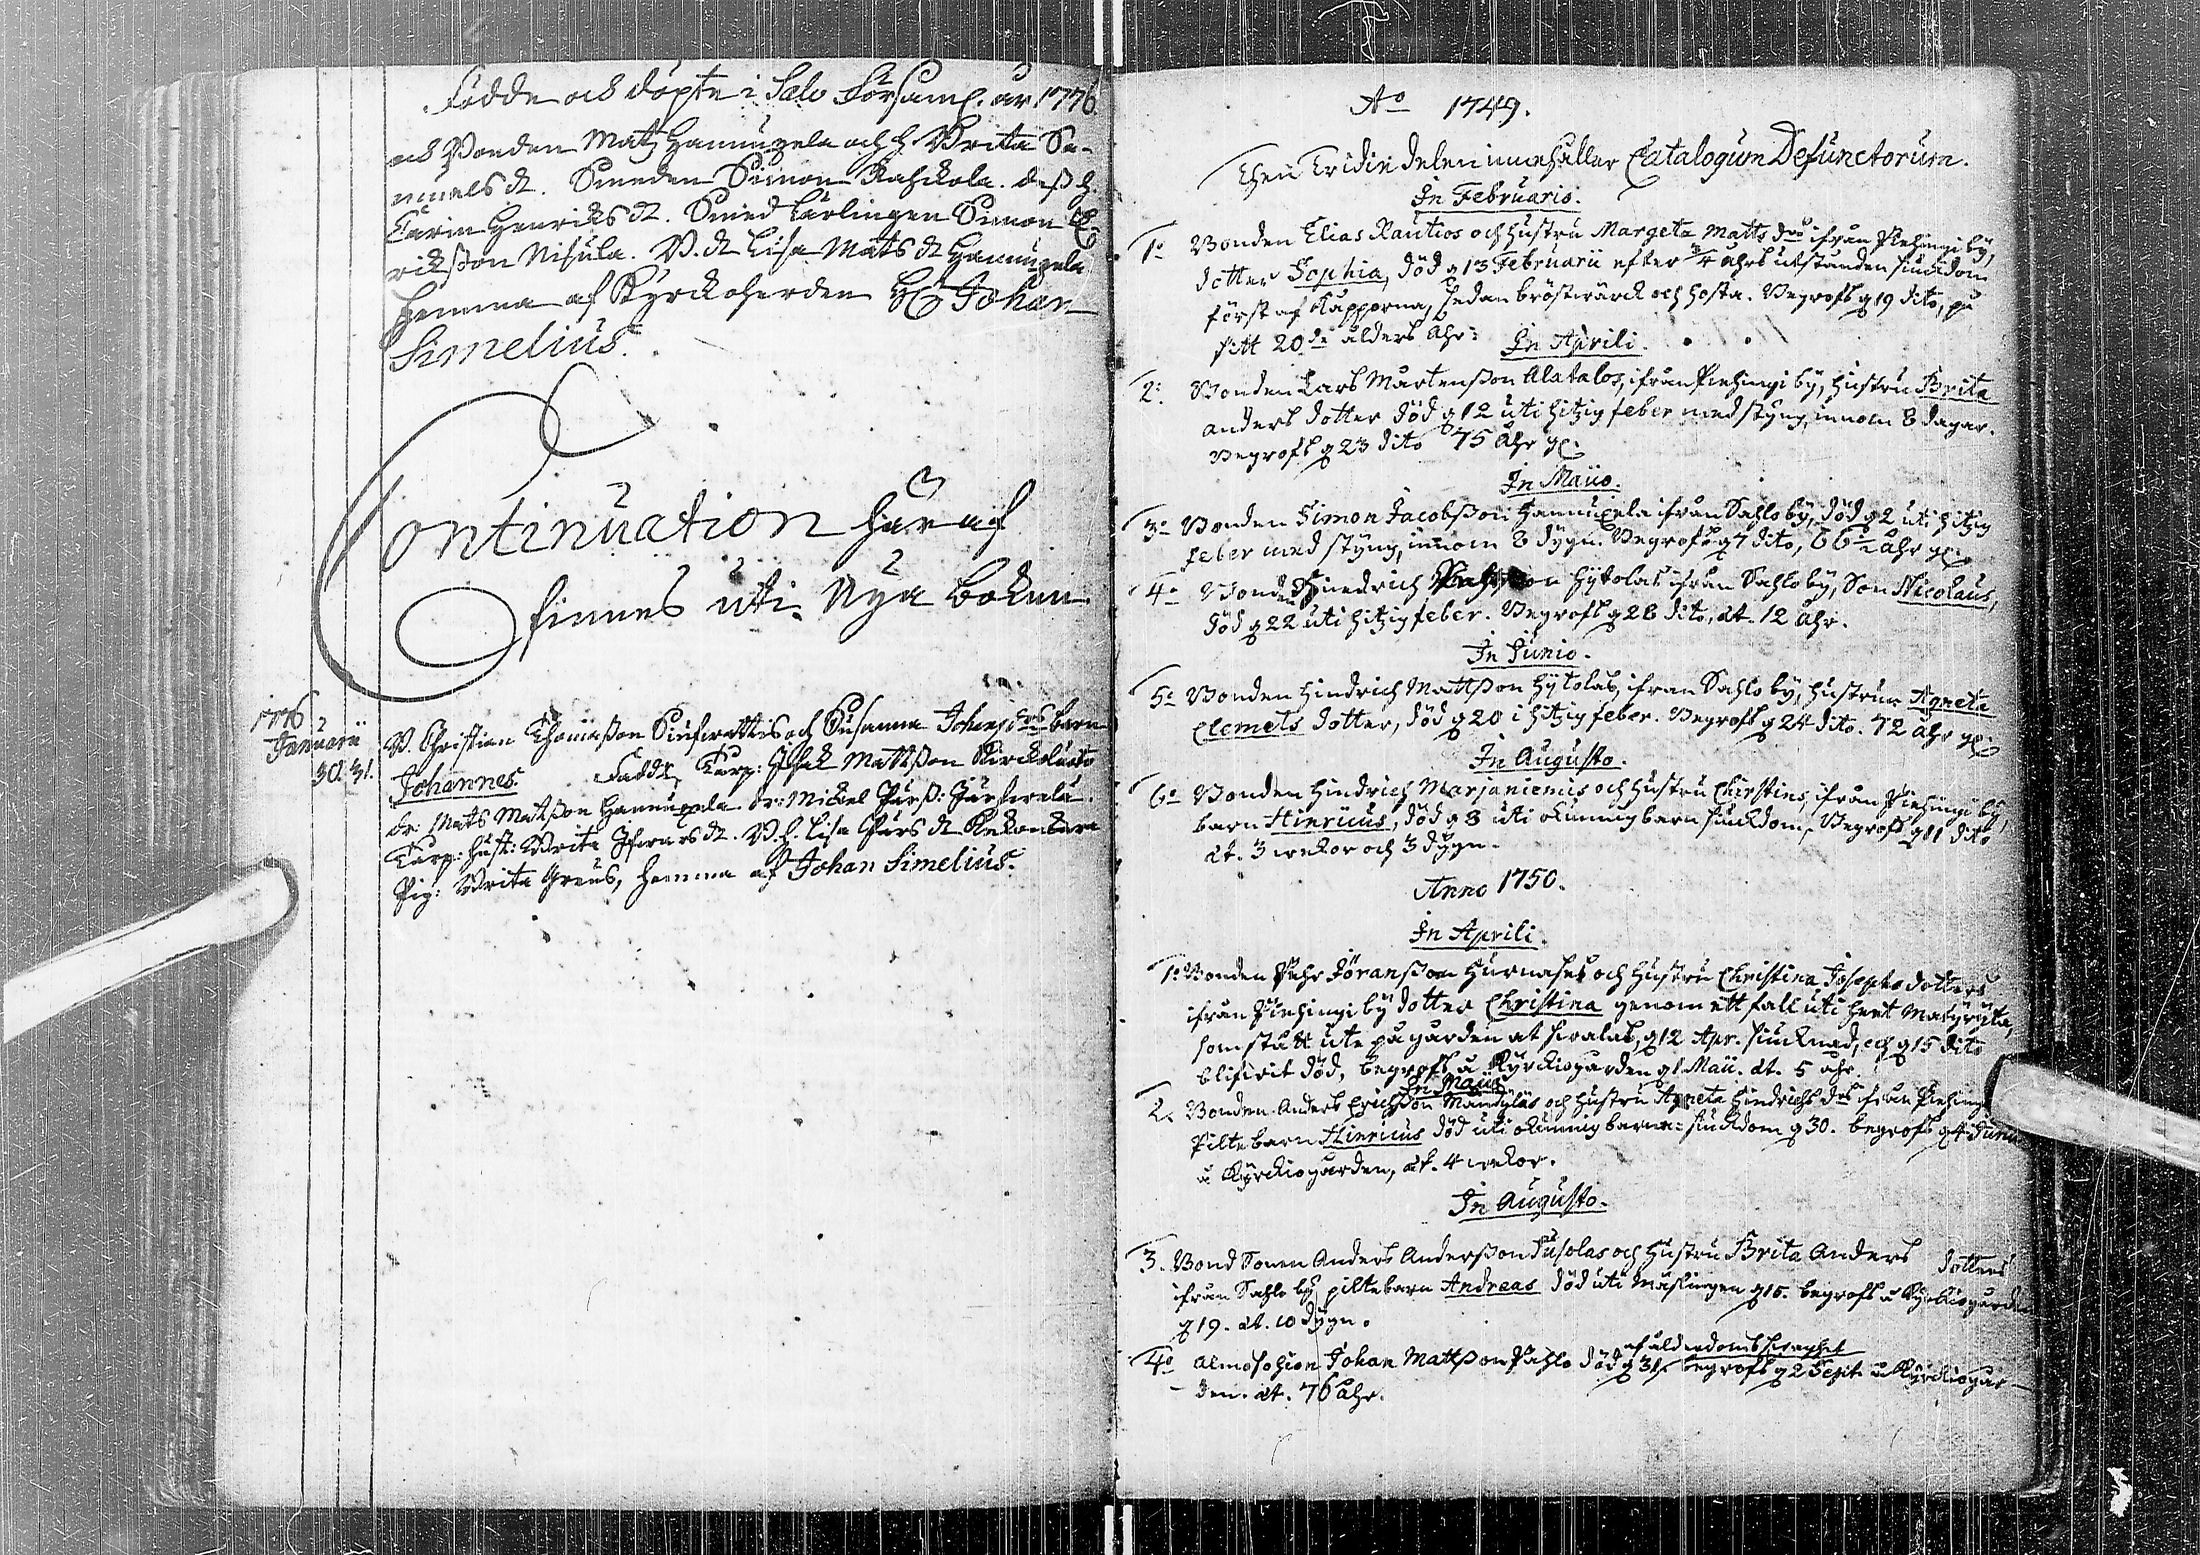 Födde och döpte i Salo Församl. år 1776
och Bonden Matz Hannuxela och h. Brita Sa-
muels dt. Smeden Simon Rahckola. dess h.
Carin Henriks dt. Smed Lärlingen Simon E-
rikßon Nisula. B. dt Lisa Mats dt Hannuxela
hemma af Kyrckoherden H Johan
Simelius.
Continuation häraf
finnes uti Nya Boken
1776
Januarii
30. 31.
B. Christian Thomasson och Susanna Johans drs barn
Johannes Faddr. Torp: Isak Mattsson
dr: Mats Matsson Hannuxela dr: Mickel
Torp: hust: Brita dt. B. h. Lisa dt
Pig: Brita Greus, hemma af Johan Simelius.
Ao 1749.
Then Tridie delen innehåller Catalogum Defunctorum.
In Februario.
1o Bonden Elias Rautios och hustru Margeta Matts drs ifrån Piehingi by,
dotter Sophia, död d 13 Februarii efter 3/4 åhrs utstånden siuckdom
först af Kopporna, sedan bröstwärck och hosta. Begrofs d 19 dito, på
sitt 20de ålders åhr.
In Aprili.
2: Bonden Lars Mårtensson Alatalos, ifrån Piehingi by, hustru Brita
Anders dotter död d 12 uti hitzig feber med styng, innom 8 dagar.
Begrofs d 23 dito 75 åhr gl:
In Maijo.
3o Bonden Simon Jacobsson Hannuxela ifrån Sahlo by, död d 2 uti hitzig
feber med styng, innom 8 dygn. Begrofs d 7 dito, 66 1/2 åhr gl:
4o Bonden Hindrich Hytolas ifrån Sahlo by, Son Nicolaus,
död d 22 uti hitzig feber. Begrofs d 28 dito, æt. 12 åhr.
In Junio.
5o Bonden Hindrich Mattsson Hytolas, ifrån Sahlo by, hustru Agneta
Clemets dotter, död d 20 i hitzig feber. Begrofs d 24 dito. 72 åhr gl:
In Augusto.
6o Bonden Hindrich Marjaniemis och hustru Christins, ifrån Piehingi by,
barn Hinricus, död d 8 uti okunnig barn siuckdom, Begrofs d 11 dito
æt. 3 wekor och 3 dygn.
Anno 1750.
In Aprili.
1o Bonden Pehr Jöransson Hurnases och hustru Christina Josephs dotters
ifrån Piehingi by dotter Christina genom ett fall uti heet
som stått ute på gården at swalas, d 12 Apr. siucknad, och d 15 dito
blifwit död, begrofs å Kyrckiogården d 1 Maii. æt. 5 åhr.
In Maijo
2. Bonden Anders Erichsson Mändyläs och hustru Agneta Hindrichs drs ifrån Piehing
Piltebarn Hinricus död uti okunnig barna siuckdom d 30. begrofs d 4 Junii
å Kyrckiogården, æt. 4 wekor.
In Augusto.
3. Bond Sonen Anders Andersson Jusolas och hustru Brita Anders dotters
ifrån Sahlo by piltebarn Andreas död uti Mäslingen d 15. begrofs å Kyrckiogården
d 19. æt. 10 dygn.
af ålderdoms swaghet
4o Almosohion Johan Mattsson Pahlo död d 31. begrofs d 2 Sept. å Kyrckiogår-
den. æt. 76 åhr.